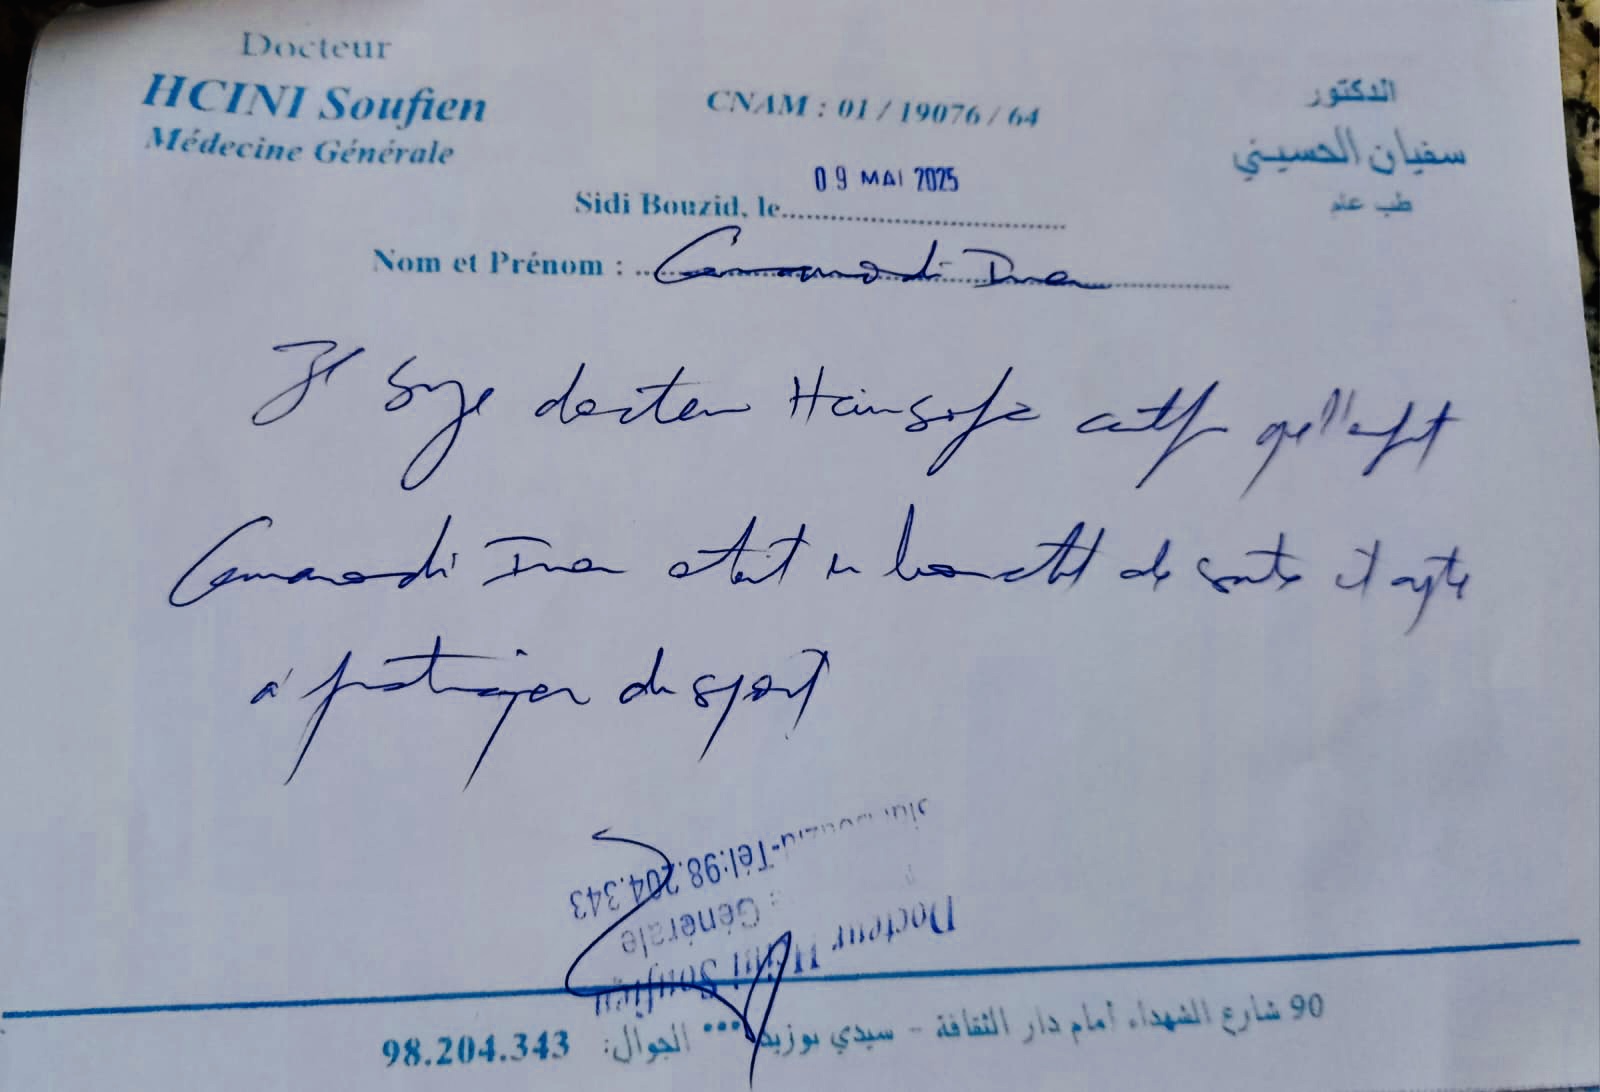 Docteur
HCINI Soufien
Médecine Générale
CNAM : 01 / 19076 / 64
الدكتور
سفيان الحسيني
طب عام
09 MAI 2025
Sidi Bouzid, le
Nom et Prénom :
docteur Hcini certifie que l'enfant
état de santé et apte
à pratiquer du sport
Docteur Hcini Soufien
Générale
Tél:98.204.343
90 شارع الشهداء أمام دار الثقافة - سيدي بوزيد *** الجوال: 98.204.343